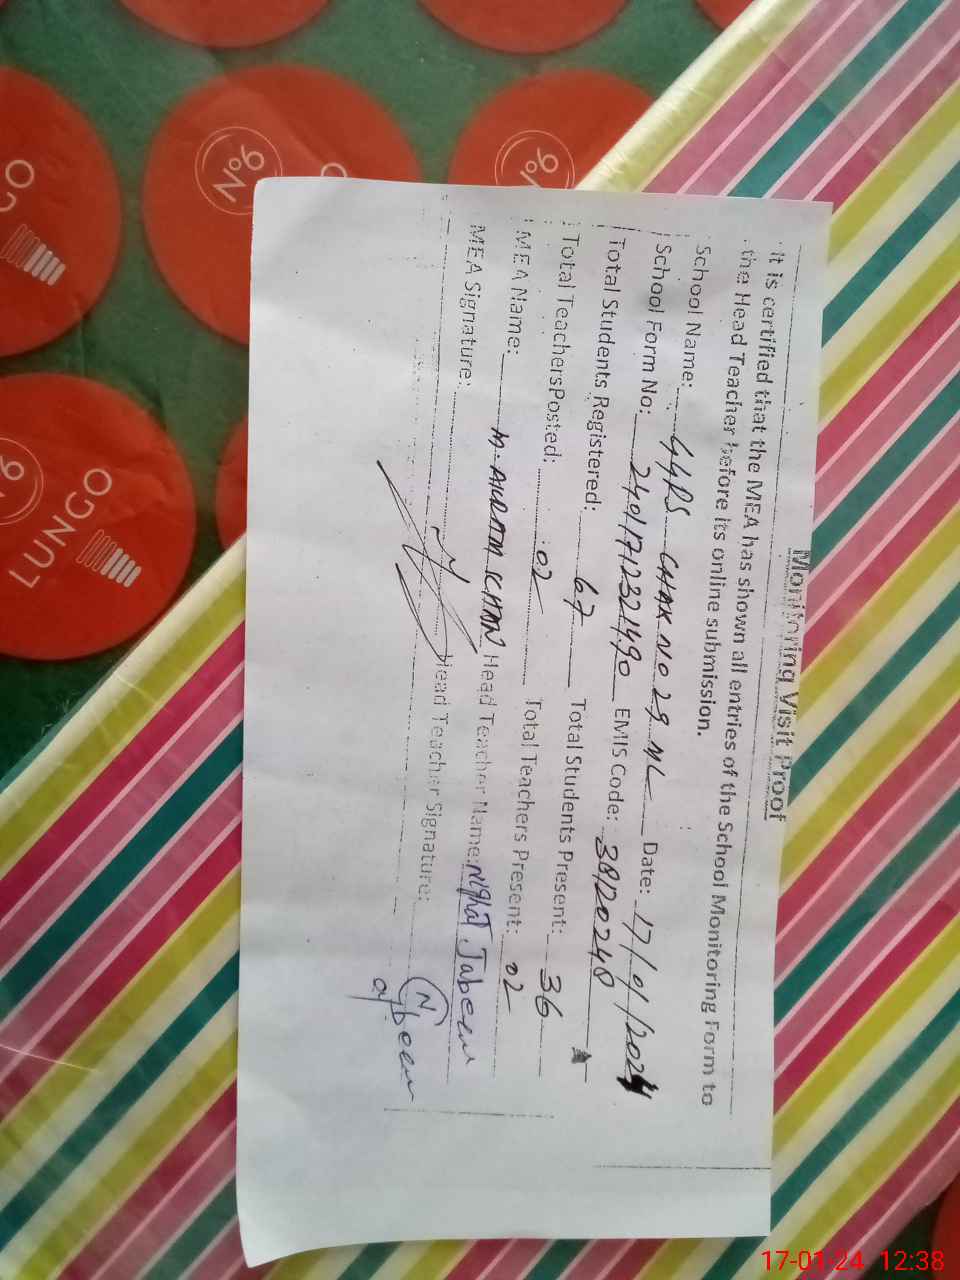 Monitoring Visit Proof
It is certified that the MEA has shown all entries of the School Monitoring Form to
the Head Teacher before its online submission.
School Name: 44RS CHAK NO 29 ML Date: 17/01/2024
School Form No: 24011712321490 EMIS Code: 38120248
Total Students Registered: 67 Total Students Present: 36
Total TeachersPosted: 02 Total Teachers Present: 02
MEA Name: M. AKRAM KHAN Head Teacher Name: Nighat Jabeen
MEA Signature: Head Teacher Signature: N
LUNGO
No6
17-01-24 12:38